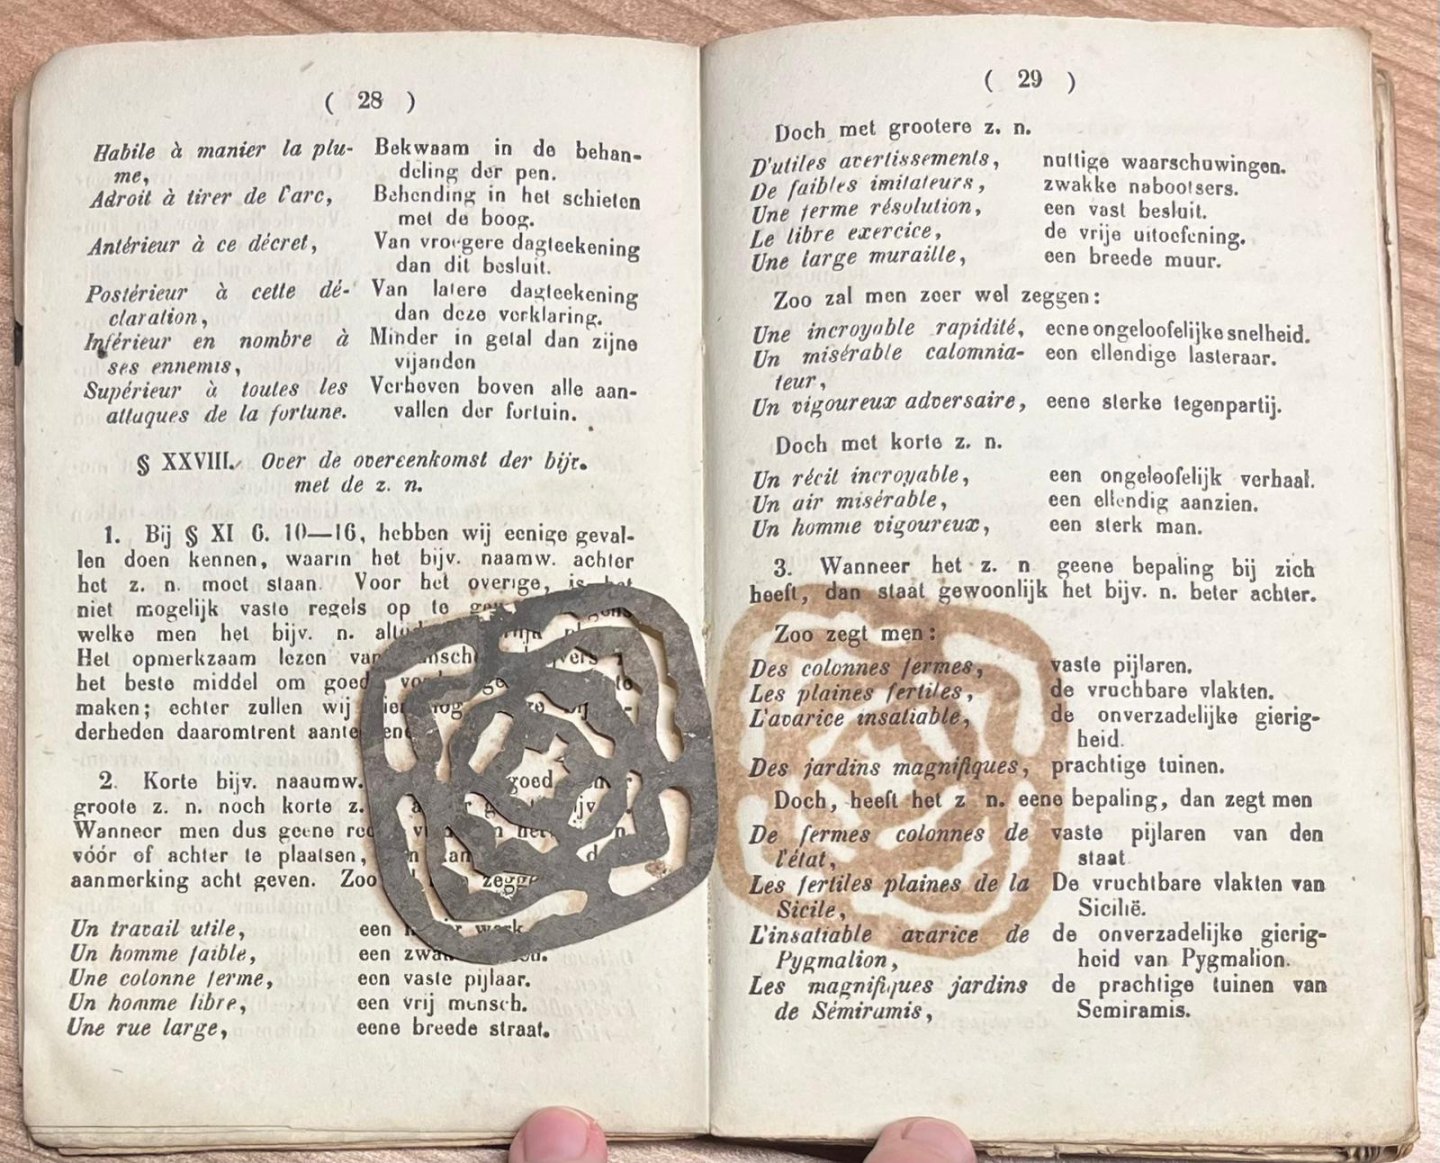 ( 28 )
Habile à manier la plu- Bekwaam in de behan-
me, deling der pen.
Adroit à tirer de l'arc, Behending in het schieten
met de boog.
Antérieur à ce décret, Van vroegere dagteekening
dan dit besluit.
Postérieur à cette dé- Van latere dagteekening
claration, dan deze verklaring.
Inférieur en nombre à Minder in getal dan zijne
ses ennemis, vijanden
Supérieur à toutes les Verheven boven alle aan-
attaques de la fortune. vallen der fortuin.
§ XXVIII. Over de overeenkomst der bijv.
met de z. n.
1. Bij § XI 6. 10—16, hebben wij eenige geval-
len doen kennen, waarin het bijv. naamw. achter
het z. n. moet staan. Voor het overige, is het
niet mogelijk vaste regels op te
welke men het bijv. n.
Het opmerkzaam lezen van
het beste middel om goed
maken; echter zullen wij
derheden daaromtrent
2. Korte bijv. naaumw. goed
groote z. n. noch korte z.
Wanneer men dus geene
vóór of achter te plaatsen,
aanmerking acht geven. Zoo
Un travail utile, een
Un homme faible, een
Une colonne ferme, een vaste pijlaar.
Un homme libre, een vrij mensch.
Une rue large, eene breede straat.
( 29 )
Doch met grootere z. n.
D'utiles avertissements, nuttige waarschuwingen.
De faibles imitateurs, zwakke nabootsers.
Une ferme résolution, een vast besluit.
Le libre exercice, de vrije uitoefening.
Une large muraille, een breede muur.
Zoo zal men zeer wel zeggen:
Une incroyable rapidité, eene ongeloofelijke snelheid.
Un misérable calomnia- een ellendige lasteraar.
teur,
Un vigoureux adversaire, eene sterke tegenpartij.
Doch met korte z. n.
Un récit incroyable, een ongeloofelijk verhaal.
Un air misérable, een ellendig aanzien.
Un homme vigoureux, een sterk man.
3. Wanneer het z. n geene bepaling bij zich
heeft, dan staat gewoonlijk het bijv. n. beter achter.
Zoo zegt men:
Des colonnes fermes, vaste pijlaren.
Les plaines fertiles, de vruchbare vlakten.
L'avarice insatiable, de onverzadelijke gierig-
heid.
Des jardins magnifiques, prachtige tuinen.
Doch, heeft het z n. eene bepaling, dan zegt men
De fermes colonnes de vaste pijlaren van den
l'état, staat
Les fertiles plaines de la De vruchtbare vlakten van
Sicile, Sicilië.
L'insatiable avarice de de onverzadelijke gierig-
Pygmalion, heid van Pygmalion.
Les magnifiques jardins de prachtige tuinen van
de Sémiramis, Semiramis.